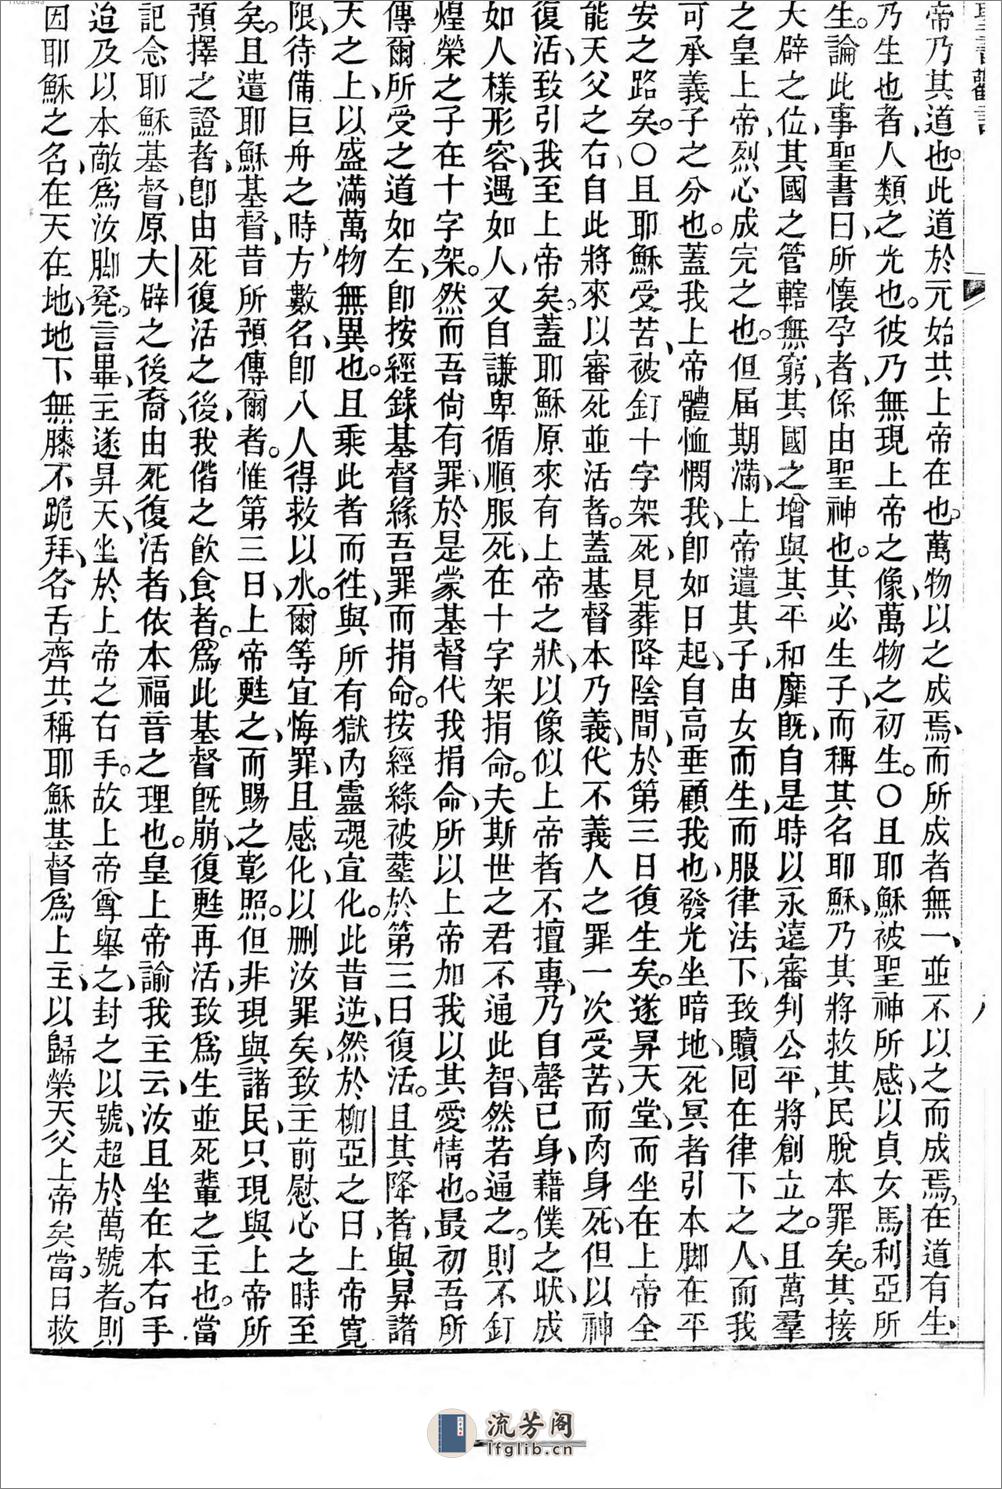 帝乃其道也。此道於元始共上帝在也。萬物以之成焉、而所成者無一、並不以之而成焉。在道有生、
乃生也者、人類之光也。彼乃無現上帝之像、萬物之初生。○且耶穌被聖神所感、以貞女馬利亞所
生。論此事聖書曰、所懷孕者、係由聖神也。其必生子、而稱其名耶穌、乃其將救其民脫本罪矣。其接
大辟之位、其國之管轄無窮、其國之增與其平和靡旣、自是時以永遠審判公平、將創立之。且萬羣
之皇上帝烈心成完之也。但屆期滿、上帝遣其子、由女而生、而服律法下、致贖囘在律下之人、而我
可承義子之分也。蓋我上帝體恤憫我、卽如日起、自高垂顧我也、發光坐暗地死冥者、引本脚在平
安之路矣。○且耶穌受苦、被釘十字架、死見葬、降陰間、於第三日復生矣。遂昇天堂、而坐在上帝全
能天父之右、自此將來以審死並活者。蓋基督本乃義、代不義人之罪一次受苦、而肉身死、但以神
復活、致引我至上帝矣。蓋耶穌原來有上帝之狀、以像似上帝者不擅專、乃自罄已身、藉僕之狀、成
如人樣形容、遇如人、又自謙卑、循順服死、在十字架捐命。夫斯世之君不通此智、然若通之、則不釘
煌榮之子在十字架。然而吾尙有罪、於是蒙基督代我捐命、所以上帝加我以其愛情也。最初吾所
傳爾所受之道如左、卽按經錄、基督緣吾罪而捐命。按經綠被塟、於第三日復活。且其降者、與昇諸
天之上、以盛滿萬物無異也。且乘此者而往、與所有獄內靈魂宣化。此昔逆、然於柳亞之日、上帝寬
限、待備巨舟之時、方數名、卽八人得救以水。爾等宜悔罪、且感化、以刪汝罪矣、致主前慰心之時至
矣。且遣耶穌基督、昔所預傳爾者。惟第三日上帝甦之、而賜之彰照。但非現與諸民、只現與上帝所
預擇之證者、卽由死復活之後、我偕之飮食者。爲此基督旣崩、復甦再活、致爲生並死輩之主也。當
記念耶穌基督、原大辟之後裔、由死復活者、依本福音之理也。皇上帝諭我主云、汝且坐在本右手、
迨及以本敵爲汝脚凳。言畢、主遂昇天、坐於上帝之右手。故上帝尊舉之、封之以號、超於萬號者。則
因耶穌之名、在天在地、地下無膝不跪拜、各舌齊共稱耶穌基督爲上主、以歸榮天父上帝矣。當日救
流芳阁
lfglib.cn